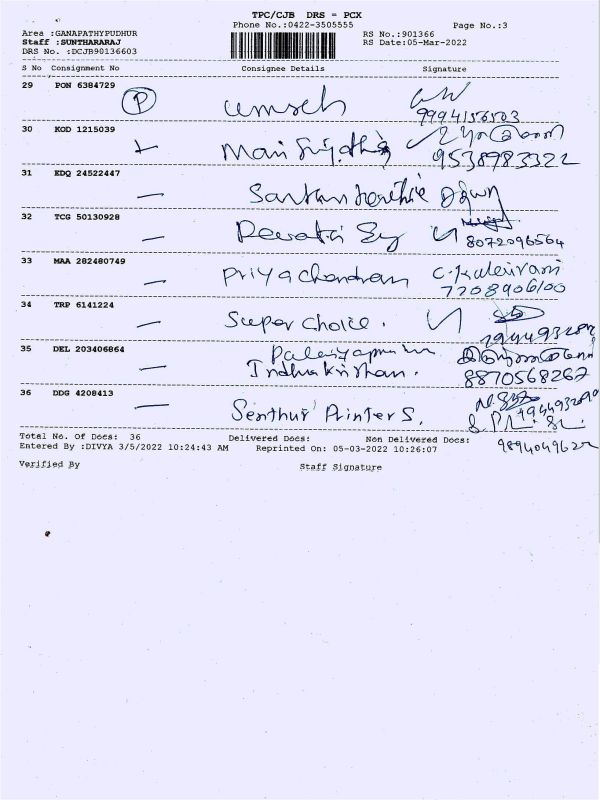 TPC/CJB DRS = PCX
Phone No.:0422-3505555 Page No.:3
Area :GANAPATHYPUDHUR RS No.:901366
Staff :SUNTHARARAJ RS Date:05-Mar-2022
DRS No. :DCJB90136603
S No Consignment No Consignee Details Signature
29 PON 6384729 P umseh
9994156503
30 KOD 1215039 Mari
9538983322
31 EDQ 24522447
32 TCG 50130928 Revathi
8072096504
33 MAA 282480749 Priyachandran C. Kaleivani
7708906100
34 TRP 6141224 Super choice.
35 DEL 203406864
Indhu Krishnan. 8870568267
36 DDG 4208413 Senthur Printers.
Total No. Of Docs: 36 Delivered Docs: Non Delivered Docs:
9894049622
Entered By :DIVYA 3/5/2022 10:24:43 AM Reprinted On: 05-03-2022 10:26:07
Verified By Staff Signature